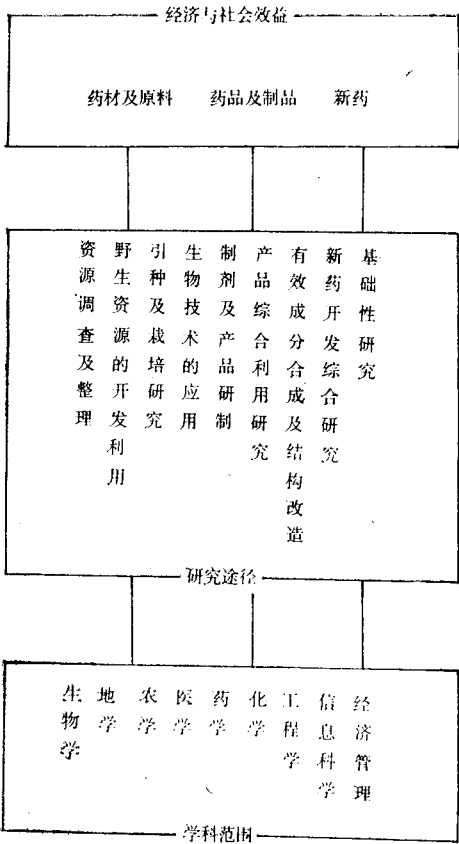 经济与社会效益
药材及原料 药品及制品 新药
资源调查及整理
野生资源的开发利用
引种及栽培研究
生物技术的应用
制剂及产品研制
产品综合利用研究
有效成分合成及结构改造
新药开发综合研究
基础性研究
研究途径
生物学
地学
农学
医学
药学
化学
工程学
信息科学
经济管理
学科范围